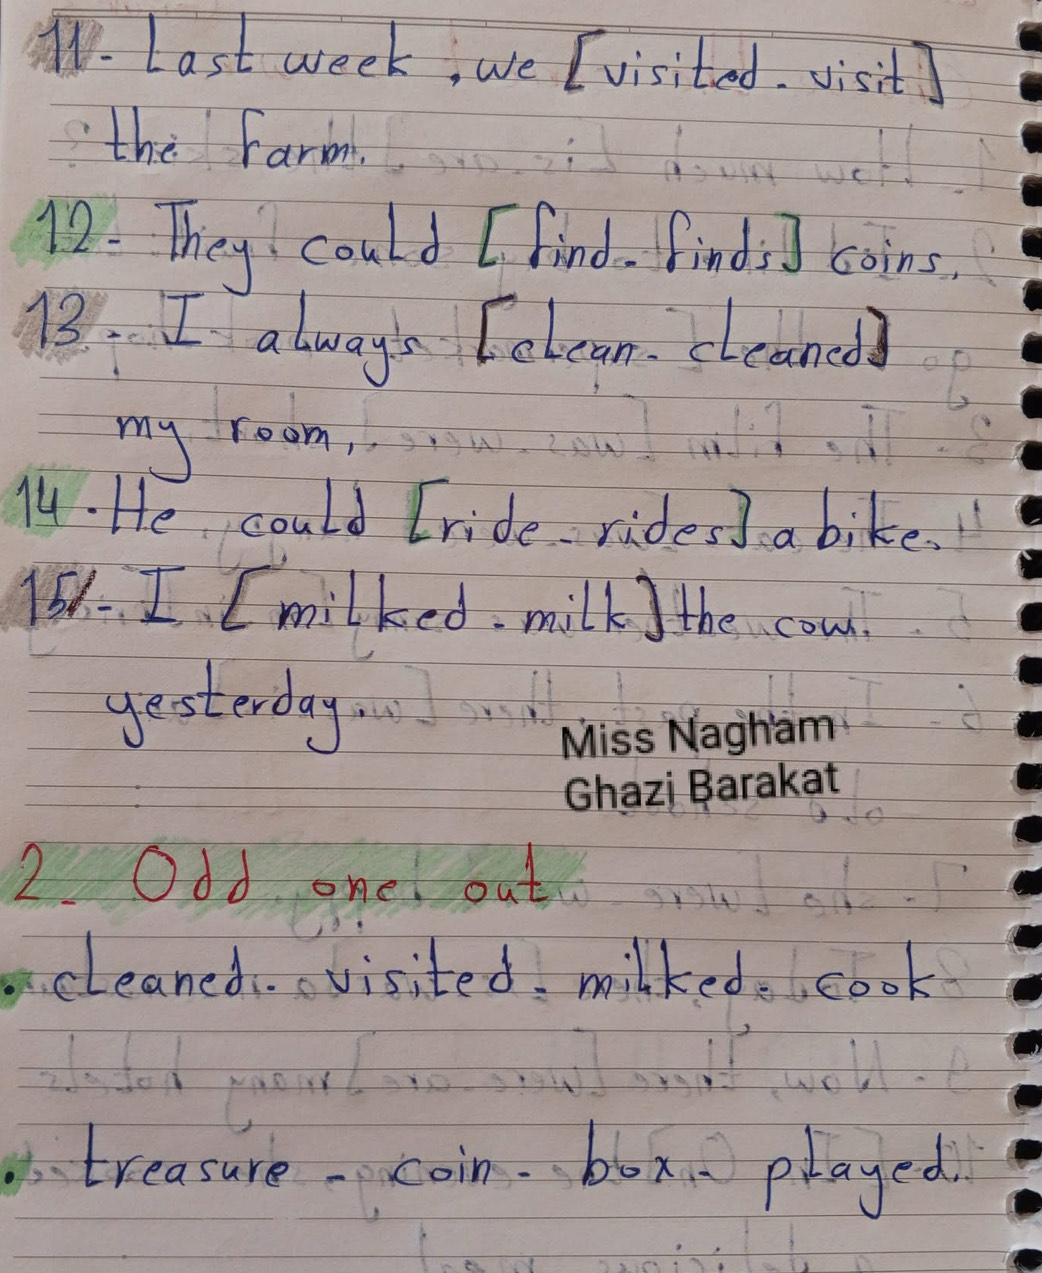 11- Last week, we [visited - visit]
the farm.
12- They could [find - finds] coins.
13 - I always [clean - cleaned]
my room.
14 - He could [ride - rides] a bike.
15 - I [milked - milk] the cow
yesterday.
Miss Nagham
Ghazi Barakat
2- Odd one out
• cleaned - visited - milked - cook
• treasure - coin - box - played.